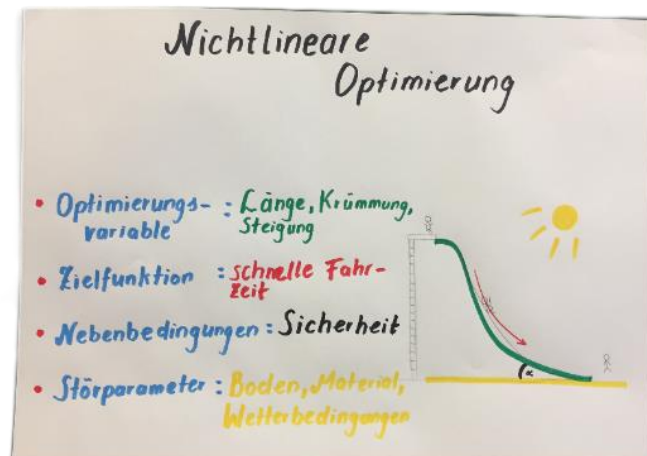 Nichtlineare
Optimierung
• Optimierungs- : Länge, Krümmung,
variable Steigung
• Zielfunktion : schnelle Fahr-
zeit
• Nebenbedingungen : Sicherheit
• Störparameter : Boden, Material,
Wetterbedingungen
α